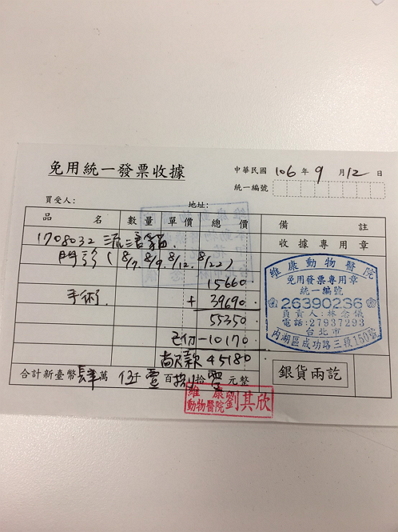 免用統一發票收據
中華民國 106 年 9 月 12 日
統一編號
買受人：
地址：
品名 數量 單價 總價 備註
收據專用章
1708032 流浪貓
門診 (8/7. 8/9. 8/12. 8/22)
15660
手術 + 39690
55350
已付 -10170
尚欠款 45180
維康動物醫院
免用發票專用章
統一編號
26390236
負責人:林念儀
電話:27937293
台北市
內湖區成功路三段150號
合計新臺幣肆萬 伍仟 壹百捌拾 零元整
銀貨兩訖
維康
動物醫院 劉其欣